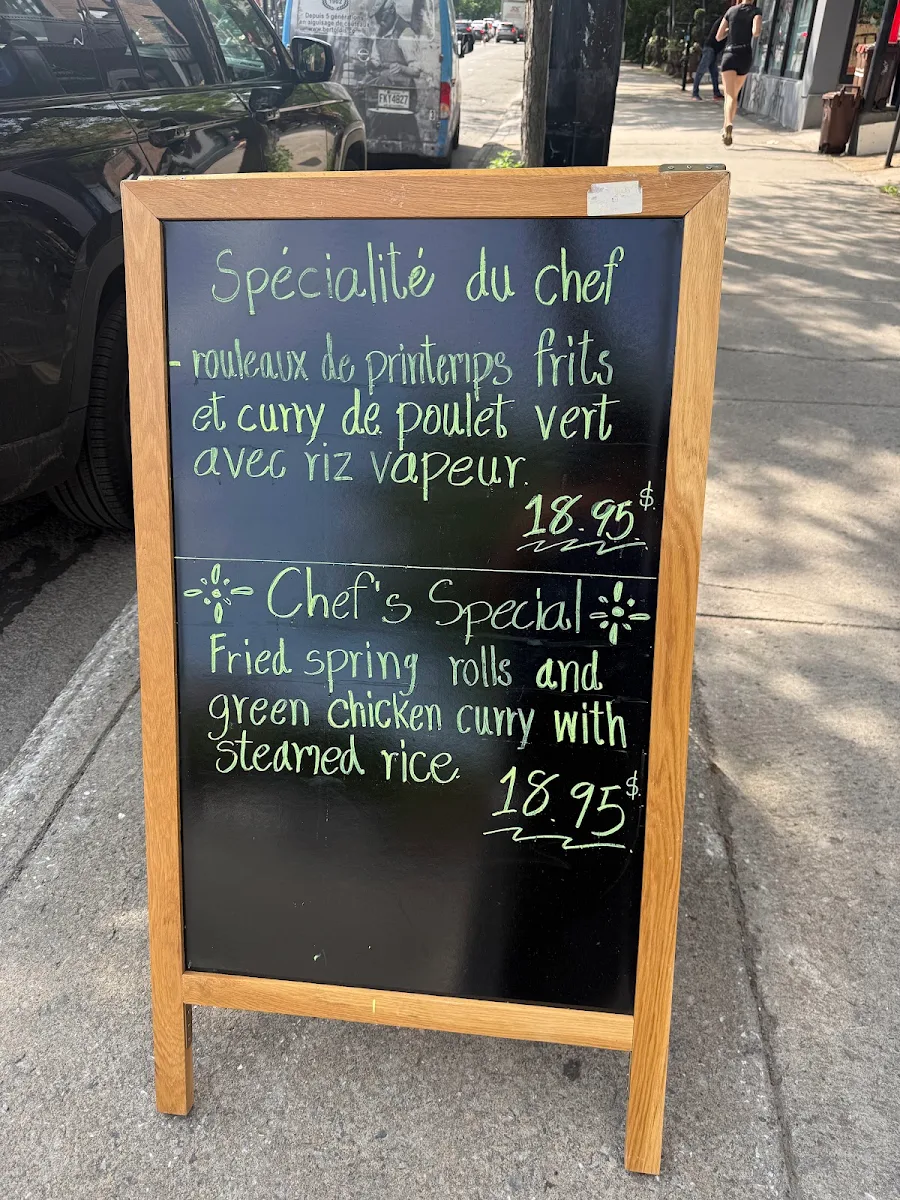 Depuis 5 générations
en aiguisage de
FK14827
Spécialité du chef
- rouleaux de printemps frits
et curry de poulet vert
avec riz vapeur.
18.95$
Chef's Special
Fried spring rolls and
green chicken curry with
steamed rice.
18.95$